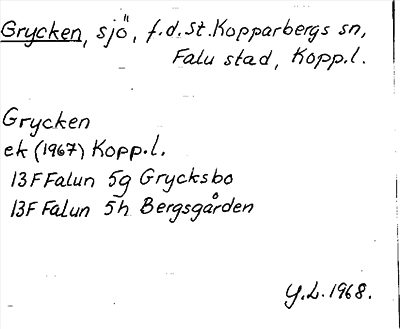 Grycken, sjö, f.d. St. Kopparbergs sn,
Falu stad, Kopp.l.
Grycken
ek (1967) Kopp.l.
13F Falun 5g Grycksbo
13F Falun 5h Bergsgården
Y.L. 1968.